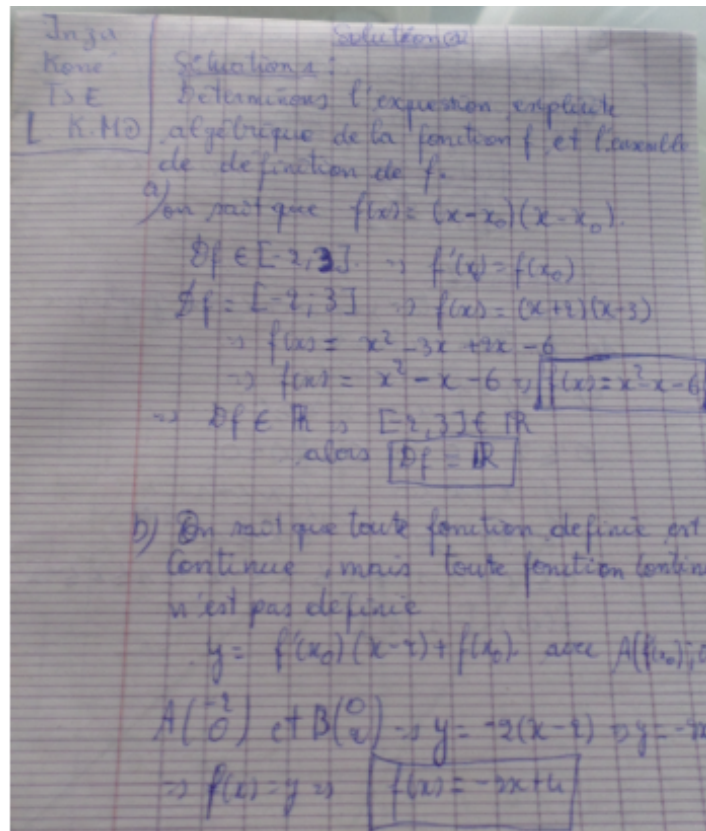 Inza
Koné
TSE
K.MD
Solution
Situation 1:
Déterminons l'expression explicite
algébrique de la fonction f et l'ensemble
de définition de f.
a) on sait que f(x) = (x-x₀)(x-x₀).
Df ∈ [-2,3]. → f'(x) = f(x₀)
Df = [-2; 3] → f(x) = (x+2)(x-3)
→ f(x) = x² - 3x + 2x - 6
→ f(x) = x² - x - 6 → f(x) = x²-x-6
→ Df ∈ ℝ, [-2,3] ∈ ℝ
alors Df = ℝ
b) On sait que toute fonction definie est
Continue, mais toute fonction contin
n'est pas definie
y = f'(x₀)(x-2) + f(x₀). avec A(f(x₀);
A(-2 0) et B(0 4) → y = -2(x-2) → y = -2x
→ f(x) = y → f(x) = -2x+4